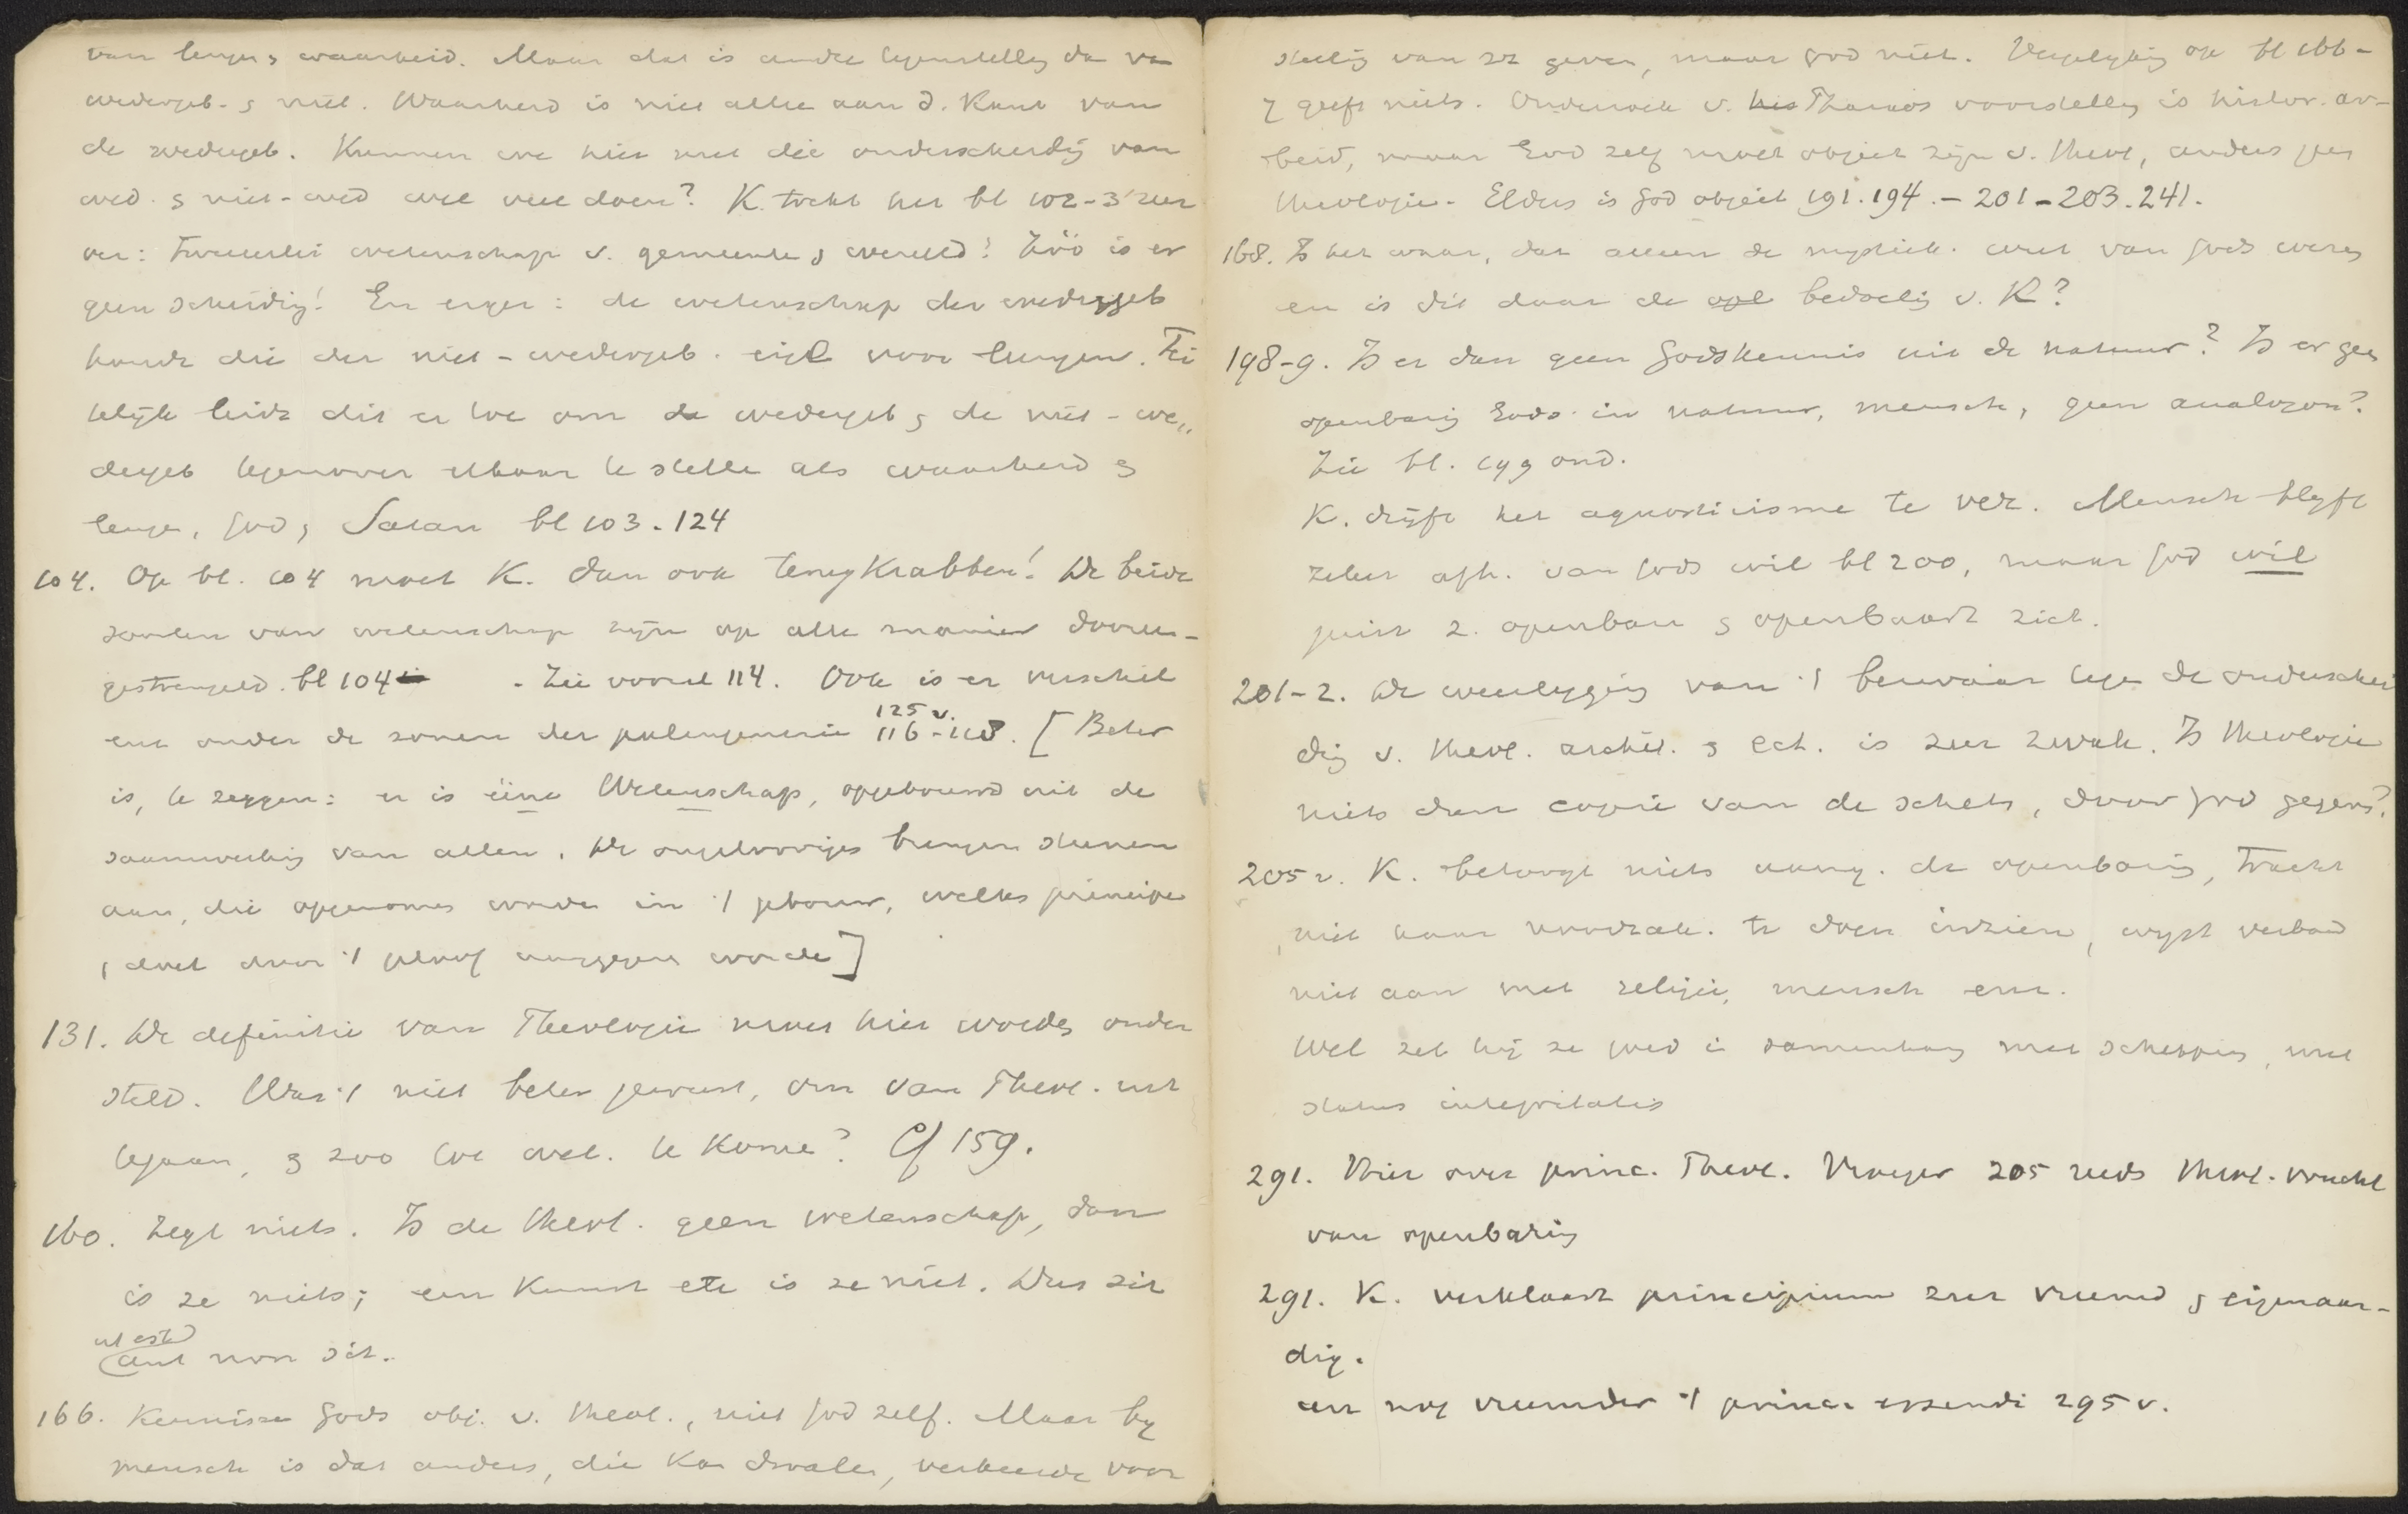 van leugen & waarheid. Maar dat is andre tegenstelling dan van
wedergeb. & niet. Waarheid is niet alleen aan d. kant van
de wedergeb. Kunnen we hier met die onderscheidg van
wed. & niet-wed wel veel doen? K. trekt het bl 102-3 zeer
ver: Tweeërlei wetenschap v. gemeente & wereld! Zóó is er
geen scheidig! En erger: de wetenschap der wedergeb
houdt die der niet-wedergeb. eigl voor leugen. Fei
telijk leidt dit er toe om de wedergeb & de niet-we„
dergeb tegenover elkaar te stellen als waarheid &
leugen, God & Satan bl 103.124
104. Op bl. 104 moet K. dan ook terugkrabben! De beide
soorten van wetenschap zijn op alle manier dooreen-
gestrengeld. bl 104 . Zie vooral 114. Ook is er verschil
ent onder de zonen der palingenesie 116-118. 125 v. [Beter
is, te zeggen: er is ééne Wetenschap, opgebouwd uit de
saamwerking van allen. De ongeloovigen brengen steenen
aan, die opgenomen worden in 't gebouw, welks principe
, doel door 't geloof aangegeven worde]
131. De definitie van Theologie moet hier worden onder
steld. Was 't niet beter geweest, om van Theol. uit
tegaan, & zoo tot wet. te komen? Cf 159.
160. Zegt niets. Is de theol. geen wetenschap, dan
is ze niets; een kunst etc is ze niet. Dus sit
ut est
aut non sit.
166. Kennisse Gods obj. v. theol., niet God zelf. Maar bij
mensch is dat anders, die kan dwalen, verkeerde voor
stelling van zz geven, maar God niet. Vergelijking op bl 166-
7 geeft niets. Onderzoek v. Thomas voorstelling is histor. ar-
beid, maar God zelf moet object zijn v. theol, anders geen
theologie. Elders is God object 191.194.-201-203.241.
168. Is het waar, dat alleen de mystiek. weet van Gods wezen
en is dit daar de bedoelig v. K?
198-9. Is er dan geen Godskennis uit de natuur? Is er geen
openbarig Gods in natuur, mensch, geen analogon?
Zie bl. 199 ond.
K. drijft het agnosticisme te ver. Mensch blijft
zeker afh. van Gods wil bl 200, maar God wil
juist z. openbaren & openbaart zich.
201-2. De weerlegging van 't bezwaar tegen de onderschei
dig v. theol. archet. & ect. is zeer zwak. Is theologie
niets dan copie van de schets, door God gegeven?
205 v. K. betoogt niets aang. de openbarig, tracht
niet haar noodzak. te doen inzien, wijst verband
niet aan met religie, mensch enz.
Wel zet hij ze goed in samenhang met schepping, met
status integritatis
291. Hier over princ. Theol. Vroeger 205 reeds theol. vrucht
van openbarig
291. K. verklaart principium zeer vreemd & eigenaar-
dig.
en nog vreemder 't princ. essendi 295 v.